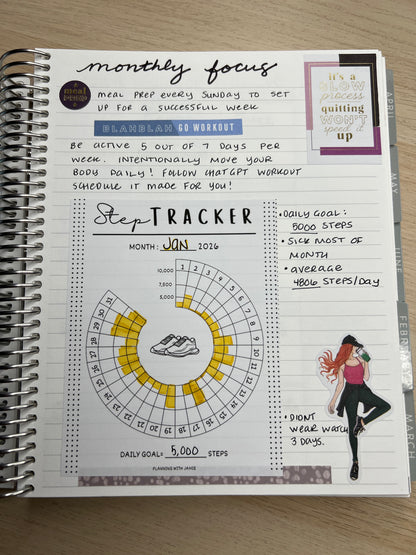 monthly focus
meal PREP
MEAL PREP EVERY SUNDAY TO SET
UP FOR A SUCCESSFUL WEEK
BLAHBLAH GO WORKOUT
BE ACTIVE 5 OUT OF 7 DAYS PER
WEEK. INTENTIONALLY MOVE YOUR
BODY DAILY! FOLLOW CHATGPT WORKOUT
SCHEDULE IT MADE FOR YOU!
it's a
SLOW
process
quitting
WON'T
speed it
up
Step TRACKER
MONTH: JAN 2026
10,000
7,500
3,000
1 2 3 4 5 6 7 8 9 10 11 12 13 14 15 16 17 18 19 20 21 22 23 24 25 26 27 28 29 30 31
DAILY GOAL: 5,000 STEPS
PLANNING WITH JAMIE
• DAILY GOAL:
5000 STEPS
• SICK MOST OF
MONTH
• AVERAGE
4806 STEPS/DAY
• DIDNT
WEAR WATCH
3 DAYS.
APRIL
MAY
JUNE
FEBRUARY
MARCH